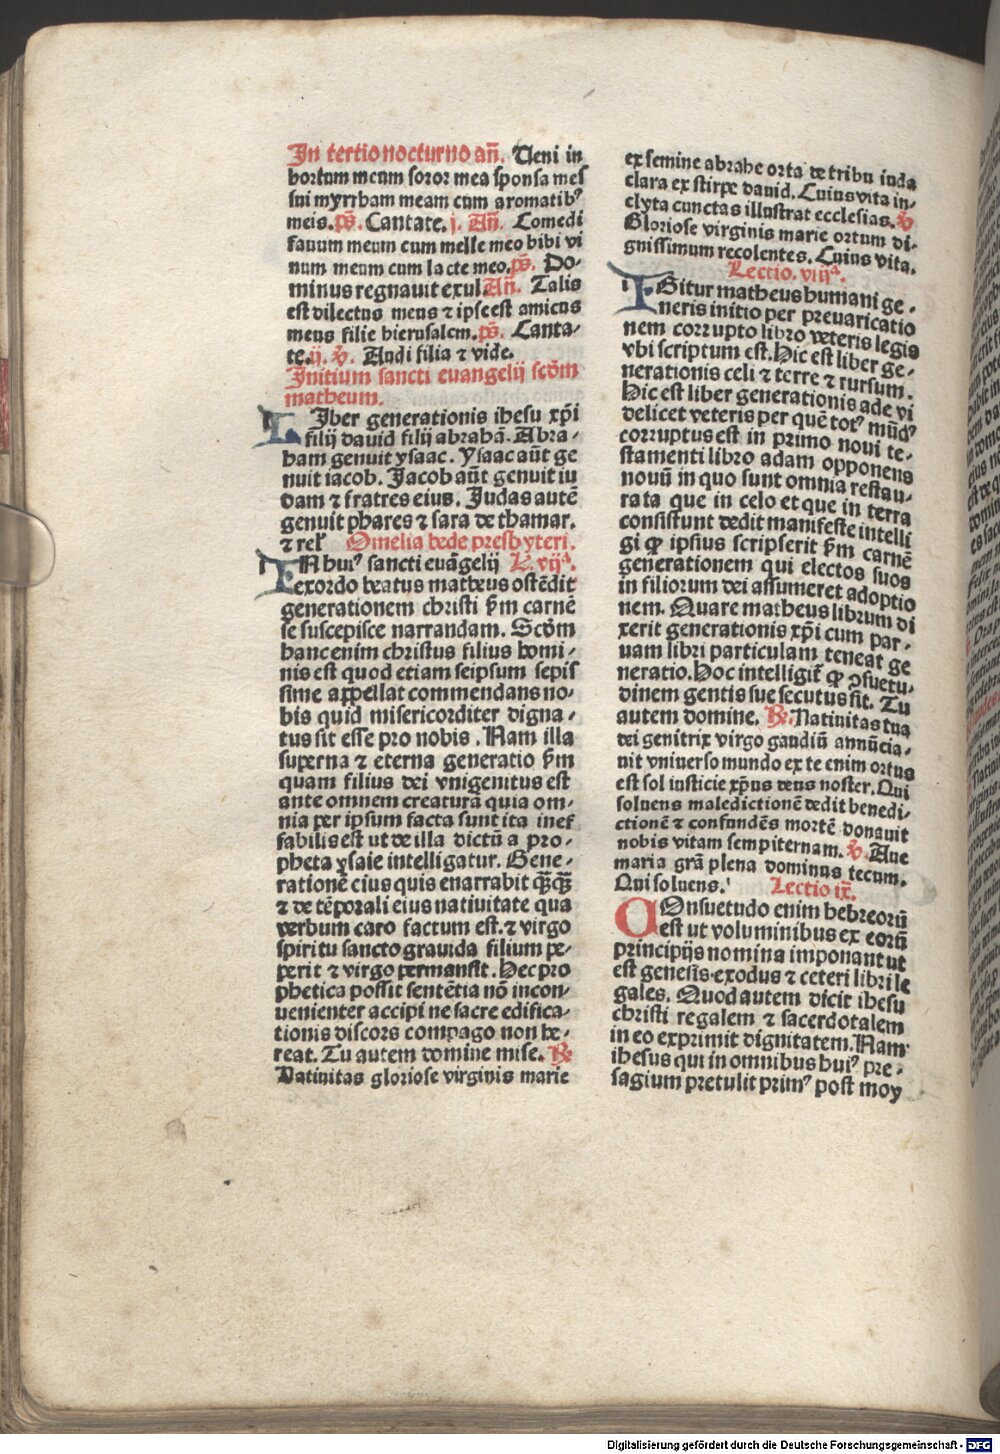 In tertio nocturno añ. Ueni in
hortum meum soror mea sponsa mes
sui myrrham meam cum aromatibꝰ
meis. ps̄. Cantate. j. Añ. Comedi
fauum meum cum melle meo bibi vi
num meum cum lacte meo. ps̄. Do-
minus regnauit exul. Añ. Talis
est dilectus meus ⁊ ipse est amicus
meus filie hierusalem. ps̄. Canta-
te. ij. ℣. Audi filia ⁊ vide.
Initium sancti euangelij scd̄m
matheum.
LIber generationis ihesu xp̄i
filij dauid filij abrahā. Abra-
ham genuit ysaac. Ysaac aūt ge
nuit iacob. Jacob aūt genuit iu
dam ⁊ fratres eius. Judas autē
genuit phares ⁊ sara de thamar.
⁊ rel̄ Omelia bede presbyteri.
IN huiꝰ sancti euāgelij L. vijᵃ.
exordo beatus matheus ostēdit
generationem christi ẜm carnē
se suscepisce narrandam. Scd̄m
hanc enim christus filius homi-
nis est quod etiam seipsum sepis
sime appellat commendans no-
bis quid misericorditer digna-
tus sit esse pro nobis. Nam illa
superna ⁊ eterna generatio ẜm
quam filius dei vnigenitus est
ante omnem creaturā quia om-
nia per ipsum facta sunt ita inef
fabilis est ut de illa dictū a pro-
pheta ysaie intelligatur. Gene-
rationē eius quis enarrabit q̄ꝫq̄ꝫ
⁊ de tēporali eius natiuitate qua
verbum caro factum est. ⁊ virgo
spiritu sancto grauida filium pe-
perit ⁊ virgo permansit. Hec pro
phetica possit sentētia nō incon-
uenienter accipi ne sacre edifica-
tionis discors compago non he-
reat. Tu autem domine mise. ℞
Natiuitas gloriose virginis marie
ex semine abrahe orta de tribu iuda
clara ex stirpe dauid. Cuius vita in-
clyta cunctas illustrat ecclesias. ℣
Gloriose virginis marie ortum di-
gnissimum recolentes. Cuius vita.
Lectio. viijᵃ.
IGitur matheus humani ge-
neris initio per preuaricatio
nem corrupto libro veteris legis
vbi scriptum est. Hic est liber ge-
nerationis celi ⁊ terre ⁊ rursum.
Hic est liber generationis ade vi
delicet veteris per quē totꝰ mūdꝰ
corruptus est in primo noui te-
stamenti libro adam opponens
nouū in quo sunt omnia restau-
rata que in celo et que in terra
consistunt dedit manifeste intelli
gi ꝙ ipsius scripserit ẜm carnē
generationem qui electos suos
in filiorum dei assumeret adoptio
nem. Quare matheus librum di
xerit generationis xp̄i cum par-
uam libri particulam teneat ge
neratio. Hoc intelligit̄ ꝙ ꝯsuetu-
dinem gentis sue secutus sit. Tu
autem domine. ℞. Natiuitas tua
dei genitrix virgo gaudiū annūcia-
uit vniuerso mundo ex te enim ortus
est sol iusticie xp̄us deus noster. Qui
soluens maledictionē dedit benedi-
ctionē ⁊ confundēs mortē donauit
nobis vitam sempiternam. ℣. Aue
maria grā plena dominus tecum.
Qui soluens. Lectio ix̄.
COnsuetudo enim hebreorū
est ut voluminibus ex eorū
principijs nomina imponant ut
est genesis. exodus ⁊ ceteri libri le
gales. Quod autem dicit ihesu
christi regalem ⁊ sacerdotalem
in eo exprimit dignitatem. Nam
ihesus qui in omnibus huiꝰ pre-
sagium pretulit primꝰ post moy
Digitalisierung gefördert durch die Deutsche Forschungsgemeinschaft - DFG